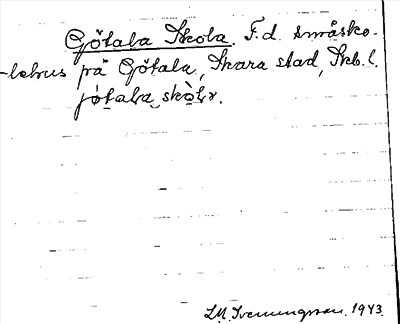 Götala Skola. F.d. småsko-
-lehus på Götala, Skara stad, Skb. l.
jötala skola.
L.M. Svenungsson. 1943.